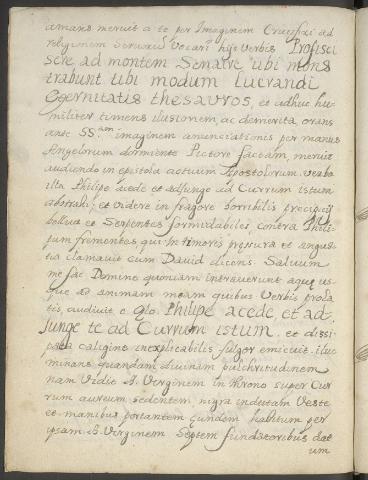 amans meruit a te per Imaginem Crucifixi ad
religionem servorum Vocari hijs verbis Profisci
scere ad montem Senatre ubi mons
trabunt tibi modum lucrandi
Æternitatis thesauros, et adhuc hu
militer timens ilusionem, ac demerita orans
ante SS.am imaginem annunciationis per manus
Angelorum dormiente Pictore factam, meruit
audiendo in epistola actuum Apostolorum verba
illa Philipe acede et adjunge ad Currum istum
abstrahi, et videre in fragore horribilis precipicij
belluas et Serpentes formidabiles contra Phili
pum frementes qui in timoris presura et angus
tia clamavit cum David dicens Salvum
me fac Domine quoniam intraverunt aque us
que ad animam meam quibus Verbis prola
tis, audivit e Celo. Philipe acede, et ad
junge te ad Currum istum. et dissi
pata caligine inexplicabilis fulgor emicuit. iluc
minans quandam divinam pulchritudinem
nam Vidit B. Virginem in throno super Cur
rum aureum sedentem nigra indutam Veste
et manibus portantem eundem habitum per
ipsam B. Virginem Septem fundatoribus dat
um